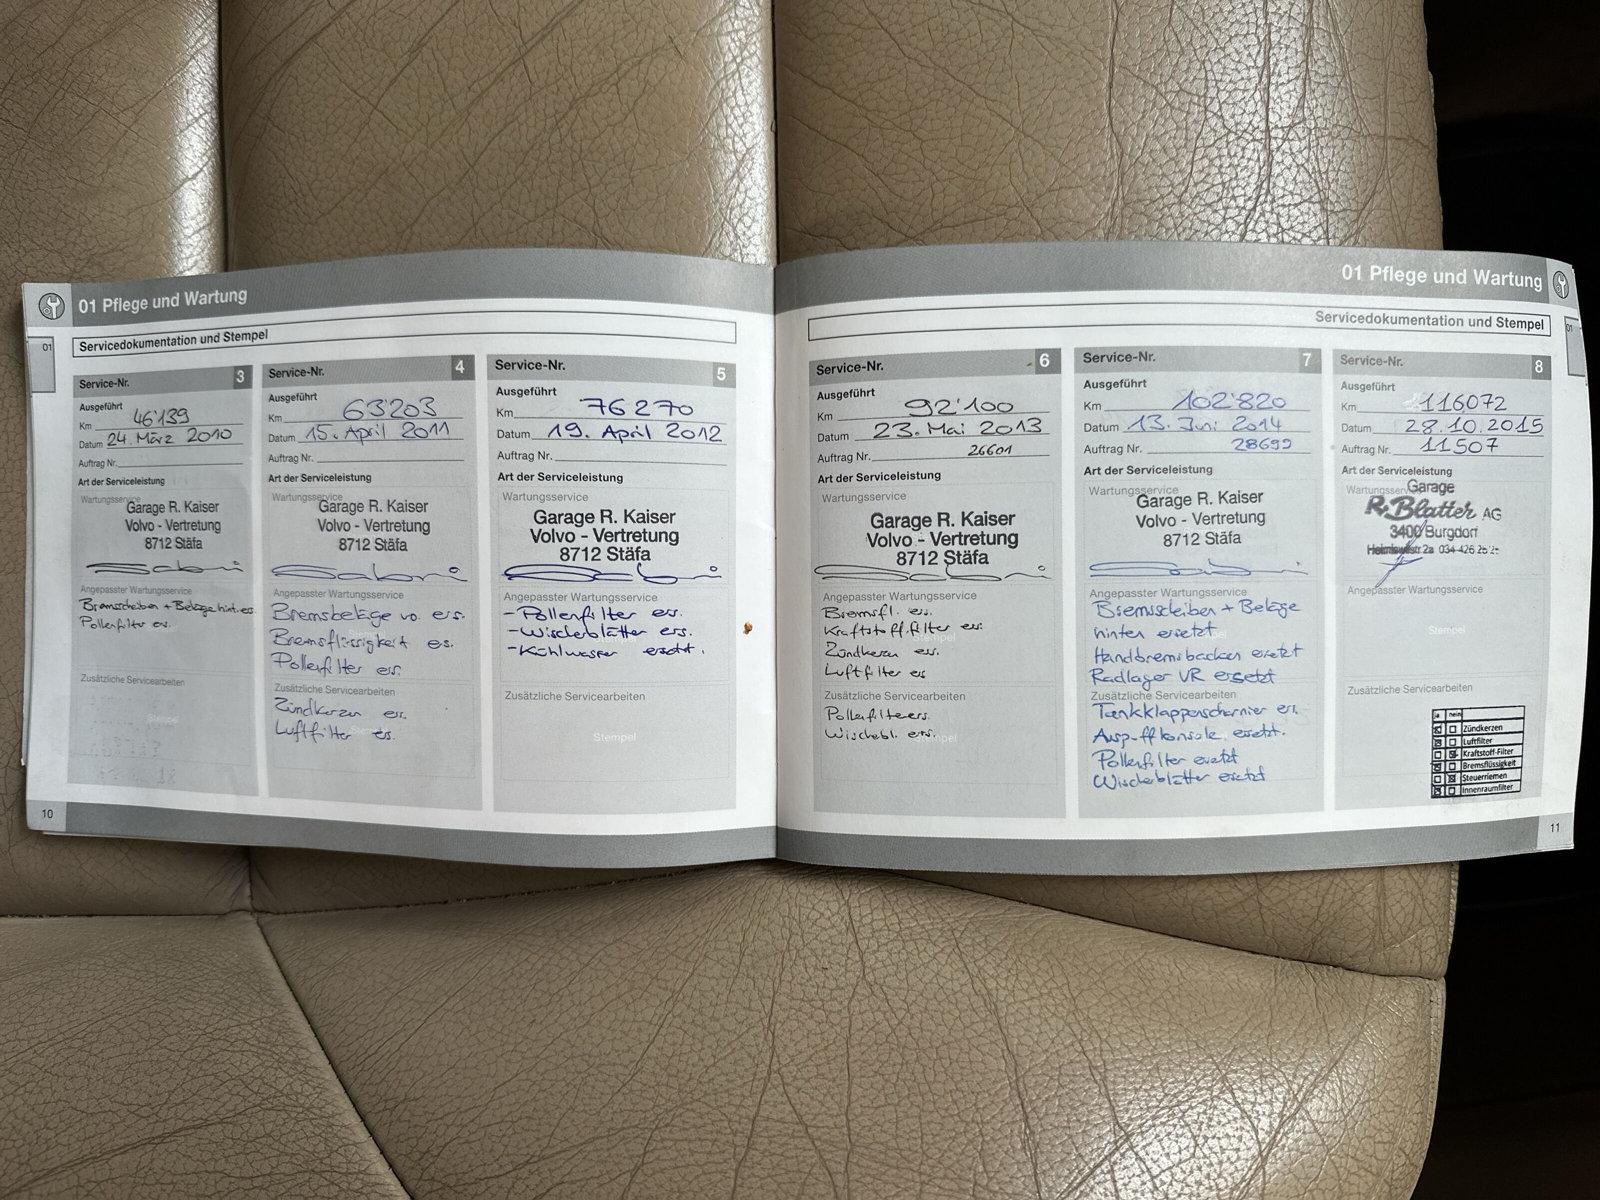 01 Pflege und Wartung
01
Servicedokumentation und Stempel
Service-Nr. 3
Ausgeführt
Km 46'139
Datum 24. März 2010
Auftrag Nr.
Art der Serviceleistung
Wartungsservice
Garage R. Kaiser
Volvo - Vertretung
8712 Stäfa
Angepasster Wartungsservice
Bremscheiben + Beläge hint. ers.
Pollenfilter ers.
Zusätzliche Servicearbeiten
Stempel
Service-Nr. 4
Ausgeführt
Km 63'203
Datum 15. April 2011
Auftrag Nr.
Art der Serviceleistung
Wartungsservice
Garage R. Kaiser
Volvo - Vertretung
8712 Stäfa
Angepasster Wartungsservice
Bremsbeläge vo. ers.
Bremsflüssigkeit ers.
Pollenfilter ers.
Zusätzliche Servicearbeiten
Zündkerzen ers.
Luftfilter ers.
Service-Nr. 5
Ausgeführt
Km 76270
Datum 19. April 2012
Auftrag Nr.
Art der Serviceleistung
Wartungsservice
Garage R. Kaiser
Volvo - Vertretung
8712 Stäfa
Angepasster Wartungsservice
- Pollenfilter ers.
- Wischerblätter ers.
- Kühlwasser ersetzt.
Zusätzliche Servicearbeiten
Stempel
10
01 Pflege und Wartung
01
Servicedokumentation und Stempel
Service-Nr. 6
Ausgeführt
Km 92'100
Datum 23. Mai 2013
Auftrag Nr. 26601
Art der Serviceleistung
Wartungsservice
Garage R. Kaiser
Volvo - Vertretung
8712 Stäfa
Angepasster Wartungsservice
Bremsfl. ers.
Kraftstoffilter ers.
Stempel
Zündkerzen ers.
Luftfilter ers
Zusätzliche Servicearbeiten
Pollenfilter ers.
Wischebl. ers.
Stempel
Service-Nr. 7
Ausgeführt
Km 102'820
Datum 13. Juni 2014
Auftrag Nr. 28699
Art der Serviceleistung
Wartungsservice
Garage R. Kaiser
Volvo - Vertretung
8712 Stäfa
Angepasster Wartungsservice
Bremsscheiben + Beläge
hinten ersetzt
Handbremsbacken ersetzt
Radlager VR ersetzt
Zusätzliche Servicearbeiten
Tankklappenscharnier ers.
Auspuffkonsole ersetzt.
Pollenfilter ersetzt
Wischerblätter ersetzt
Service-Nr. 8
Ausgeführt
Km 116072
Datum 28.10.2015
Auftrag Nr. 11507
Art der Serviceleistung
Wartungsservice
Garage
R. Blatter AG
3400 Burgdorf
034 426
Angepasster Wartungsservice
Stempel
Zusätzliche Servicearbeiten
ja nein
Zündkerzen
Luftfilter
Kraftstoff-Filter
Bremsflüssigkeit
Steuerriemen
Innenraumfilter
11